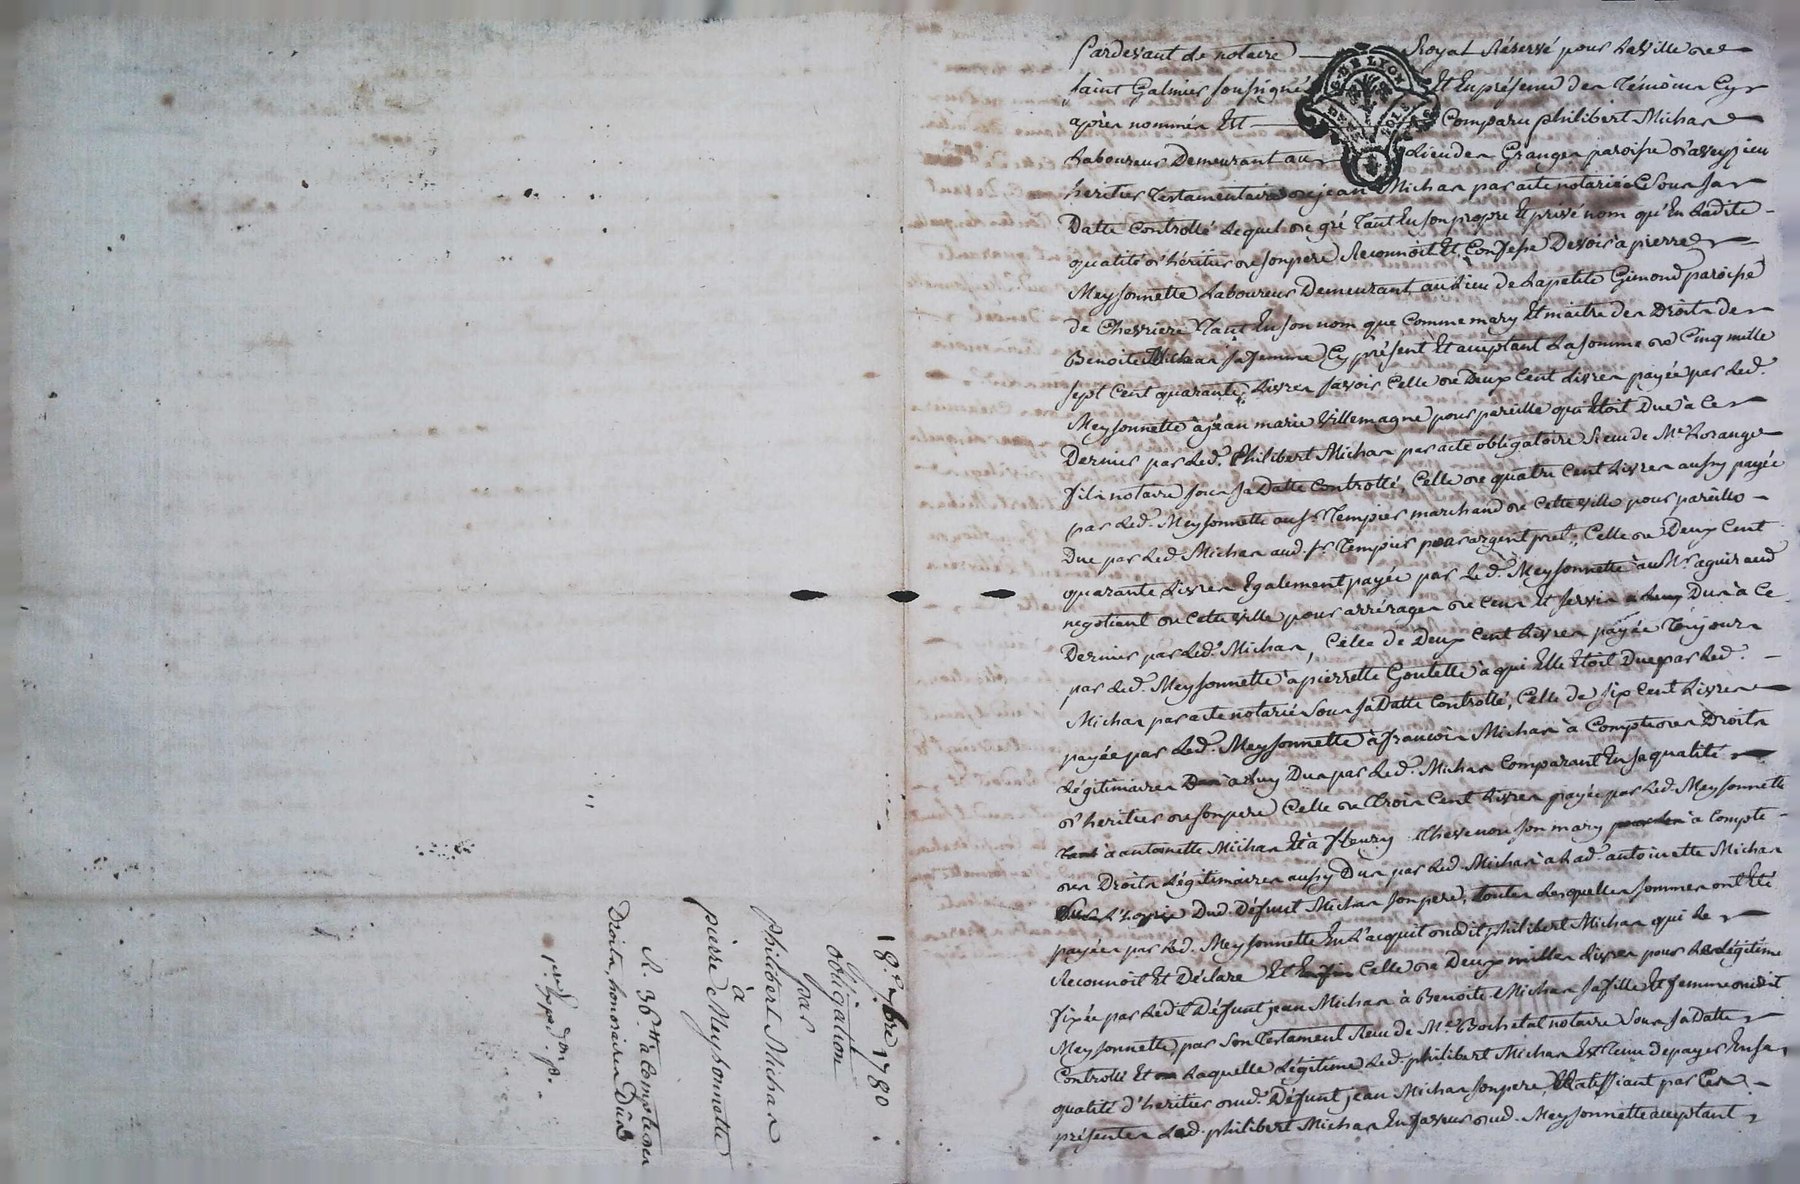 pardevant le notaire Royal Réservé pour la ville de
saint Galmier soussigné Et En présence des Témoins Cy
après nommés Est Comparu philibert Michas
Laboureur Demeurant au Lieu des Granges paroisse d'aveyzieu
heritier Testamentaire de jean Michas par acte notarié Sous sa
Datte Controllé Lequel de gré Tant En son propre Et privé nom qu'En Ladite
qualité d'héritier de son pere Reconnoit Et Confesse Devoir à pierre
Meyssonnette Laboureur Demeurant au Lieu de La petite Gimond paroisse
de Chevriere Tant En son nom que Comme mary Et maitre des Droits de
Benoite Michas sa femme Cy présent Et acceptant La somme de Cinq mille
sept Cent quarante Livres savoir Celle de Deux Cent Livres payée par Led.
Meyssonnette à jean marie Villemagne pour pareille qui Etoit Due à Ce
Dernier par Led. Philibert Michas par acte obligatoire Reçu de Me
fils notaire sous sa Datte Controllé, Celle de quatre Cent Livres aussy payée
par Led. Meyssonnette au sr. Tempier marchand de Cette ville pour pareille
Due par Led. Michas aud. sr Tempier pour argent preté, Celle de Deux Cent
quarante Livres Egalement payée par Led. Meyssonnette au Sr aguiraud
negotiant de Cette ville pour arrérages de Cens Et servis à Luy Dus à Ce
Dernier par Led. Michas, Celle de Deux Cent Livres payée Toujours
par Led. Meyssonnette à pierrette Goutelle à qui Elle Etoit Due par Led.
Michas par acte notarié Sous sa Datte Controllé, Celle de six Cent Livres
payée par Led. Meyssonnette à françois Michas à Compte des Droits
Légitimaires à Luy Dus par Led. Michas Comparant En sa qualité
d'heritier de son pere Celle de Trois Cent Livres payée par Led. Meyssonnette
à antoinette Michas Et à fleury Thevenon son mary à Compte
des Droits Légitimaires aussy Dus par Led. Michas à Lad. antoinette Michas
Dud. Défunt Michas son pere, toutes Lesquelles sommes ont Eté
payées par Led. Meyssonnette En L'acquit dudit philibert Michas qui Le
Reconnoit Et Déclare Et Enfin Celle de Deux milles Livres pour La Légitime
fixée par Ledit Défunt jean Michas à Benoite Michas sa fille Et femme dudit
Meyssonnette, par Son Testament Reçu de Me Bochetal notaire Sous sa Datte
Controllé Et Laquelle Légitime Led. philibert Michas Est Tenu de payer En sa
qualité d'heritier dud. Défunt jean Michas son pere, Ratiffiant par Ces
présentes Led. philibert Michas En faveur dud. Meyssonnette acceptant
18e. 7bre 1780
obligation
par
philibert Michas
à
pierre Meyssonnette
R. 36 à Compte des
Droits, honoraires Dûs